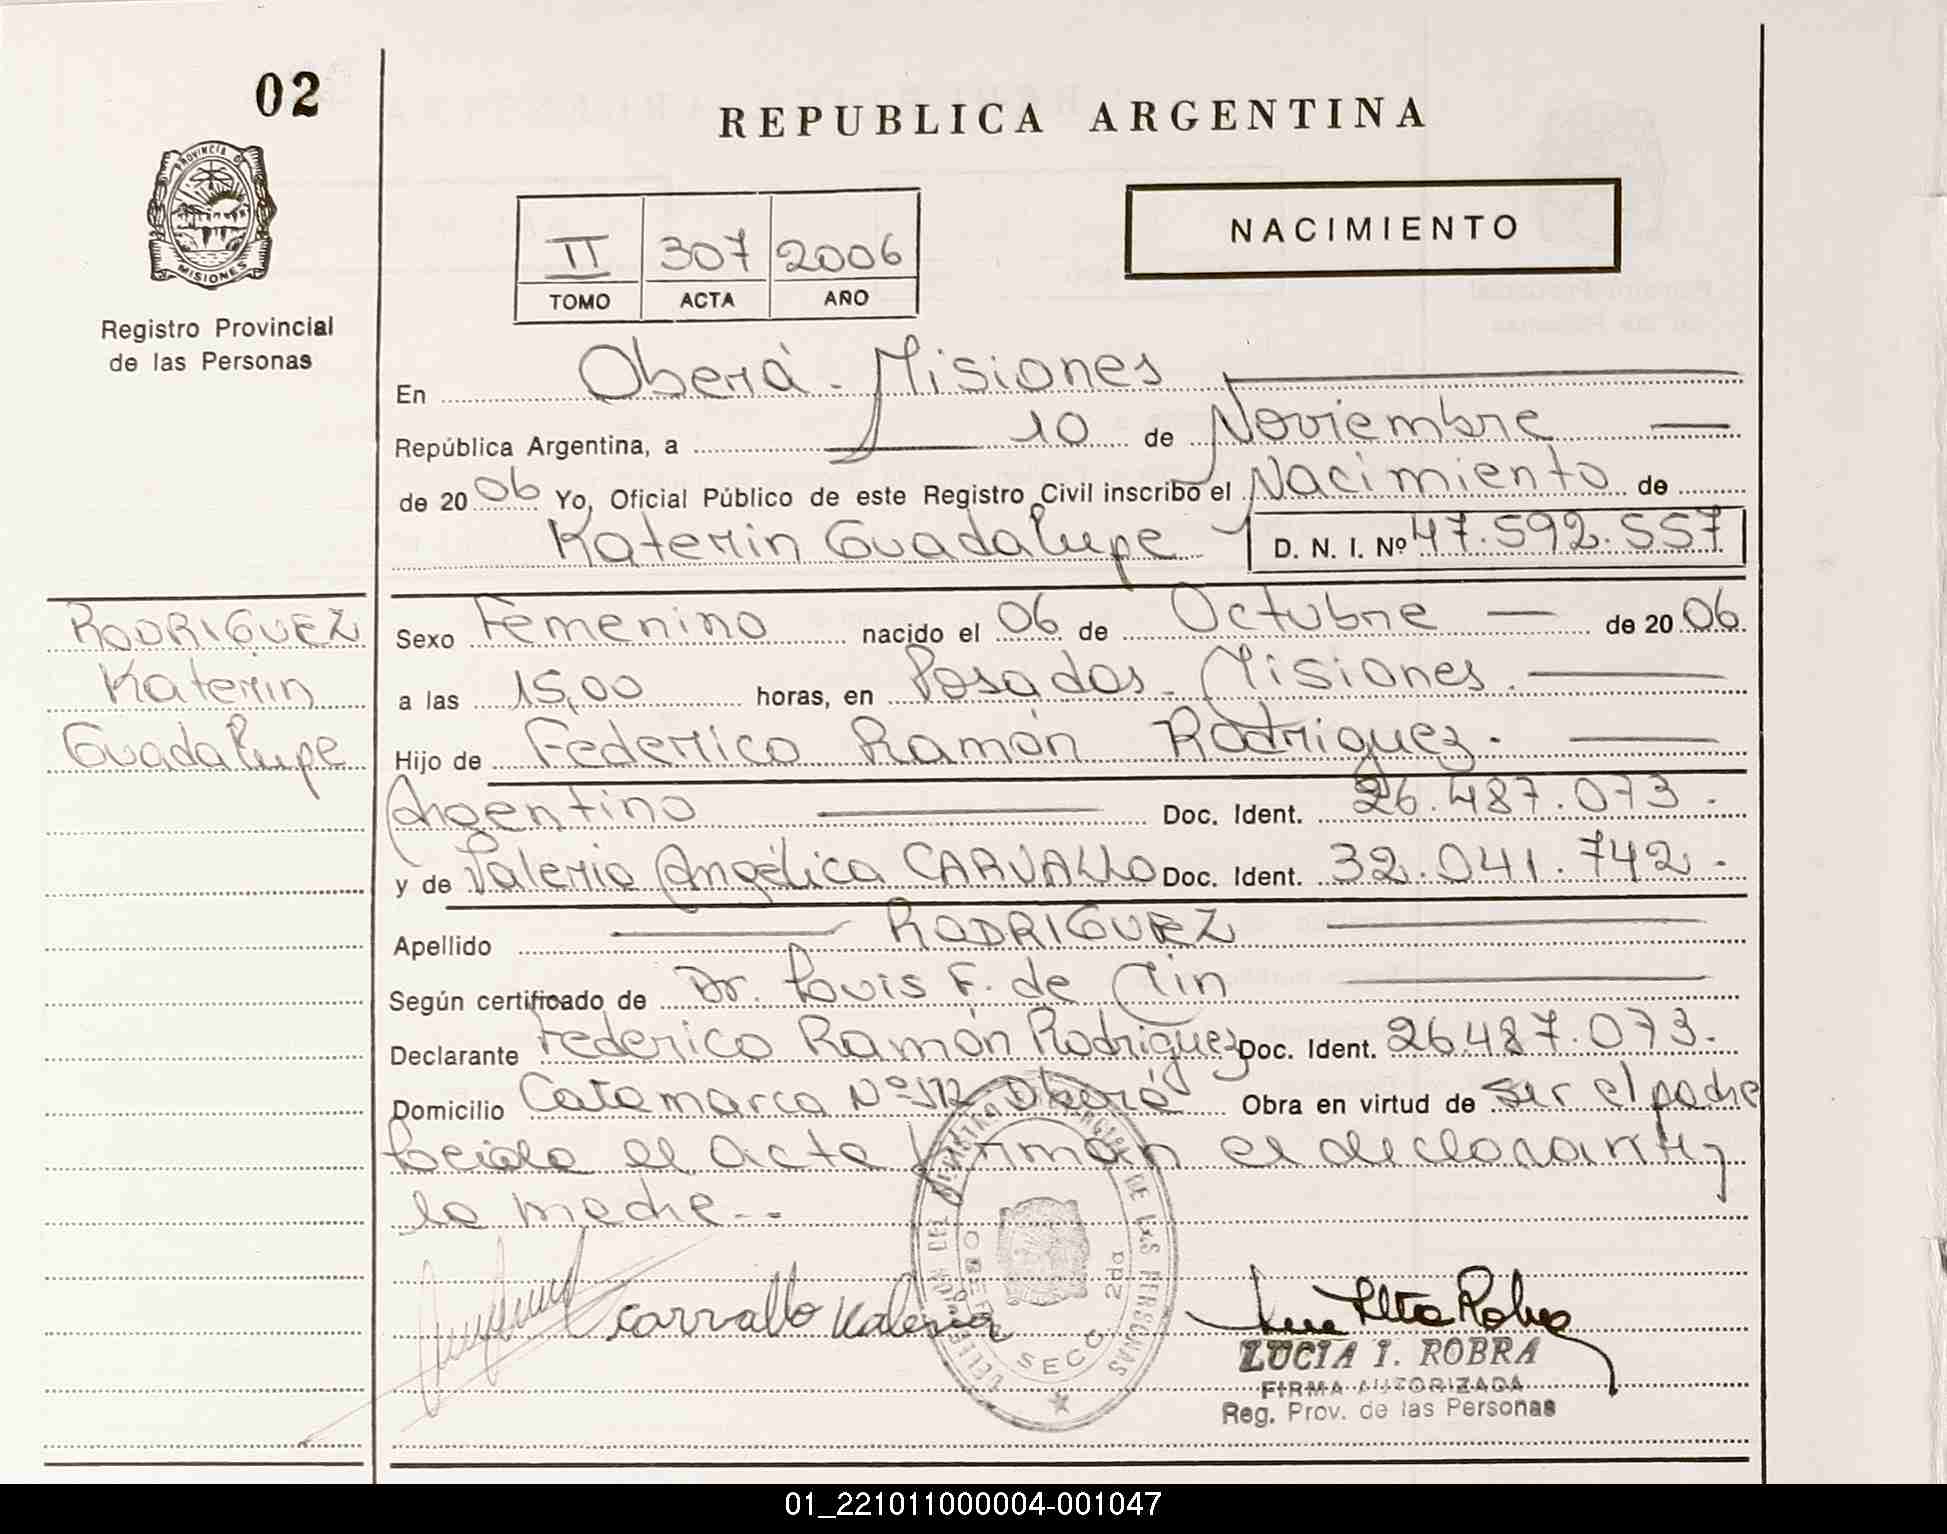 02
REPUBLICA ARGENTINA
PROVINCIA DE
MISIONES
Registro Provincial
de las Personas
II 307 2006
TOMO ACTA AÑO
NACIMIENTO
En Oberá - Misiones
República Argentina, a 10 de Noviembre
de 2006 Yo, Oficial Público de este Registro Civil inscribo el Nacimiento de
Katerin Guadalupe D. N. I. Nº 47.592.557
RODRIGUEZ
Katerin
Guadalupe
Sexo Femenino nacido el 06 de Octubre de 2006
a las 15,00 horas, en Posadas - Misiones.
Hijo de Federico Ramón Rodriguez.
Argentino Doc. Ident. 26.487.073.
y de Valeria Angélica CARVALLO Doc. Ident. 32.041.742.
Apellido RODRIGUEZ
Según certificado de Dr. Louis F. de
Declarante Federico Ramón Rodriguez Doc. Ident. 26.487.073.
Domicilio Catamarca Nº 512 Oberá Obra en virtud de ser el padre
el acta firman el declarante y
la madre.-
Carvallo Valeria
OBERA
SECC 2da
LUCIA I. ROBRA
FIRMA AUTORIZADA
Reg. Prov. de las Personas
01_221011000004-001047